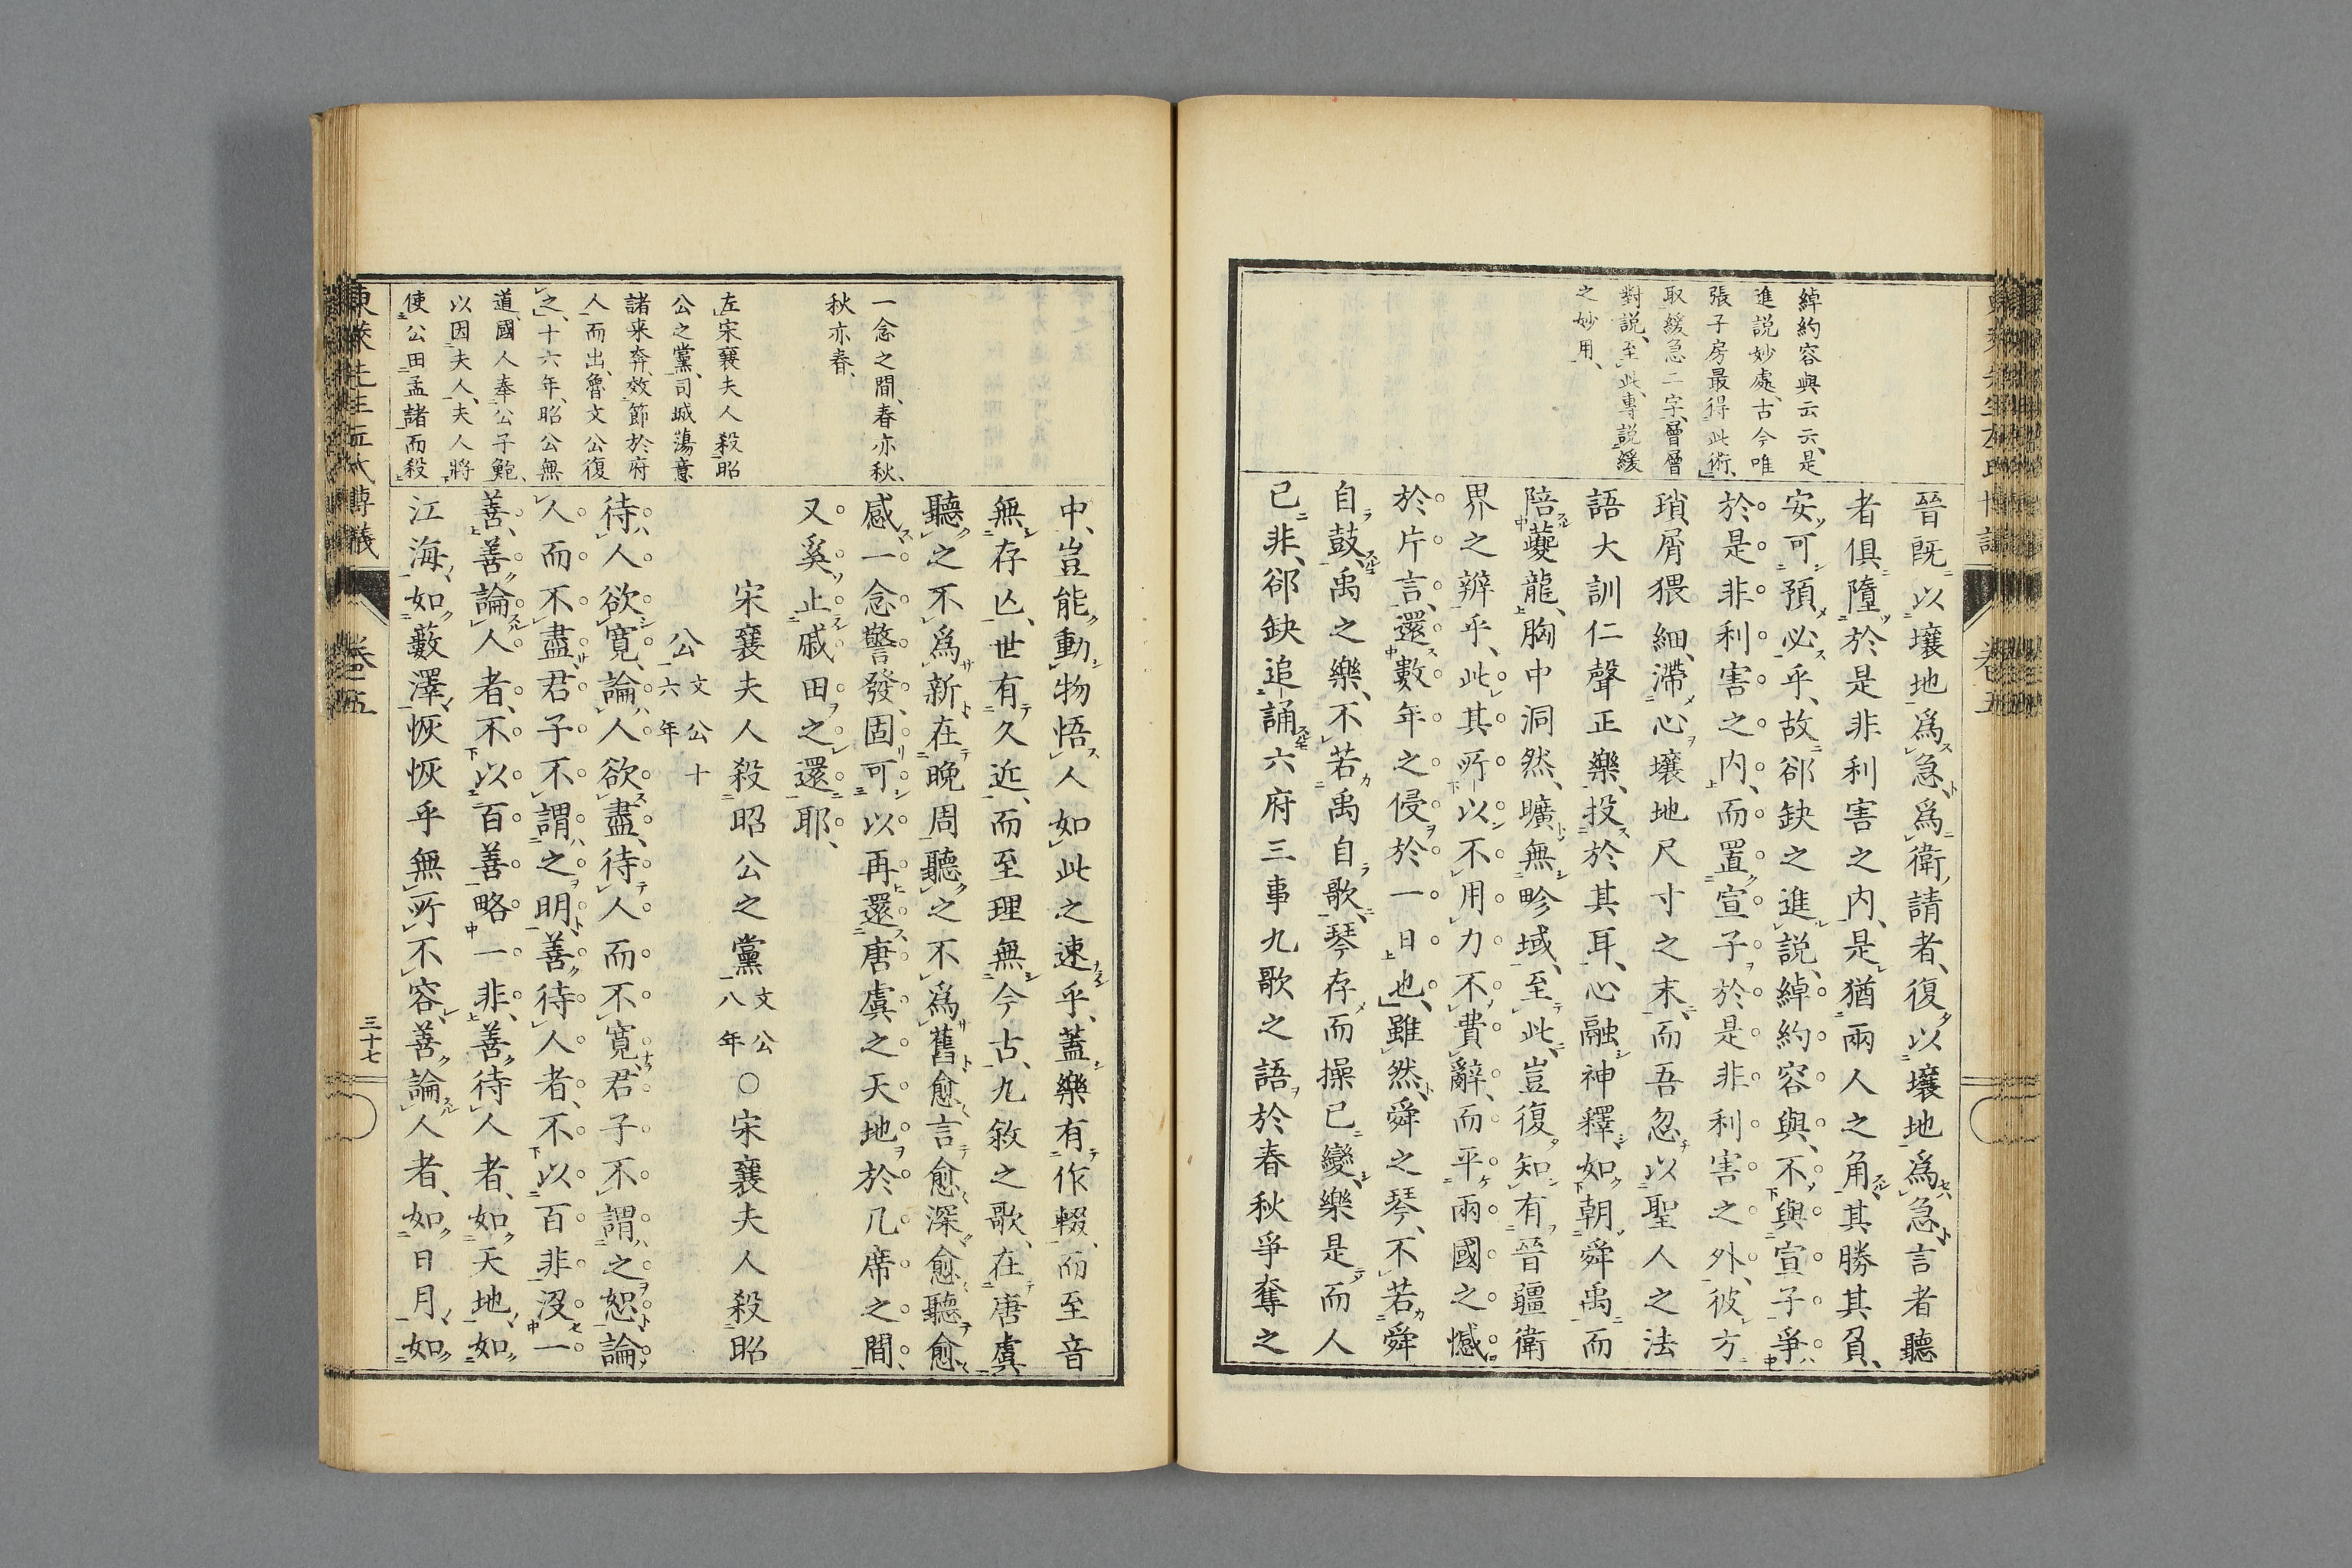 綽約容與云云、是
進説妙處、古今唯
張子房最得此術、
取緩急二字、層層
對説、至此、專説緩
之妙用、
晉既以壤地爲急、爲衛請者、復以壤地爲急、言者聽
者俱墮於是非利害之内、是猶兩人之角、其勝其負、
安可預必乎、故郤缺之進説、綽約容與、不與宣子爭
於是非利害之内、而置宣子於是非利害之外、彼方
瑣屑猥細、滯心壤地尺寸之末、而吾忽以聖人之法
語大訓仁聲正樂、投於其耳、心融神釋、如朝舜禹而
陪夔龍、胸中洞然、曠無畛域、至此、豈復知有晉疆衛
界之辨乎、此其所以不用力、不費辭、而平兩國之憾
於片言、還數年之侵於一日也、雖然、舜之琴、不若舜
自鼓、禹之樂、不若禹自歌、琴存而操已變、樂是而人
已非、郤缺追誦六府三事九歌之語於春秋爭奪之
卷五
一念之間、春亦秋、
秋亦春、
左宋襄夫人殺昭
公之黨、司城蕩意
諸来奔、效節於府
人而出、魯文公復
之、十六年、昭公無
道、國人奉公子鮑、
以因夫人、夫人將
使公田孟諸而殺
中、豈能動物悟人如此之速乎、蓋樂有作輟、而至音
無存亾、世有久近、而至理無今古、九敘之歌、在唐虞
聽之不爲新、在晩周聽之不爲舊、愈言愈深、愈聽愈
感、一念警發、固可以再還唐虞之天地於几席之間、
又奚止戚田之還耶、
宋襄夫人殺昭公之黨文公八年○宋襄夫人殺昭
公文公十六年
待人欲寛、論人欲盡、待人而不寛、君子不謂之恕、論
人而不盡、君子不謂之明、善待人者、不以百非没一
善、善論人者、不以百善略一非、善待人者、如天地、如
江海、如藪澤、恢恢乎無所不容、善論人者、如日月、如
東萊先生左氏博議
卷五
三十七